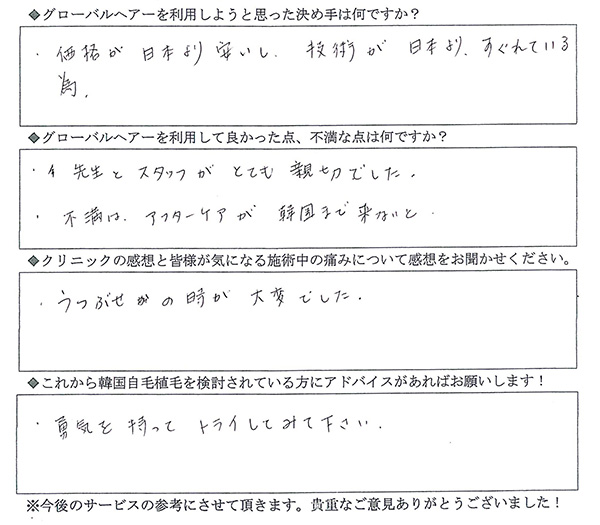 ◆グローバルヘアーを利用しようと思った決め手は何ですか？
・価格が 日本より 安いし、技術が 日本より、すぐれている
為。
◆グローバルヘアーを利用して良かった点、不満な点は何ですか？
・先生と スタッフが とても 親切でした。
・不満は、アフターケアが 韓国まで 来ないと.
◆クリニックの感想と皆様が気になる施術中の痛みについて感想をお聞かせください。
・うつぶせ の時が 大変でした.
◆これから韓国自毛植毛を検討されている方にアドバイスがあればお願いします！
・勇気を 持って トライしてみて下さい.
※今後のサービスの参考にさせて頂きます。貴重なご意見ありがとうございました！